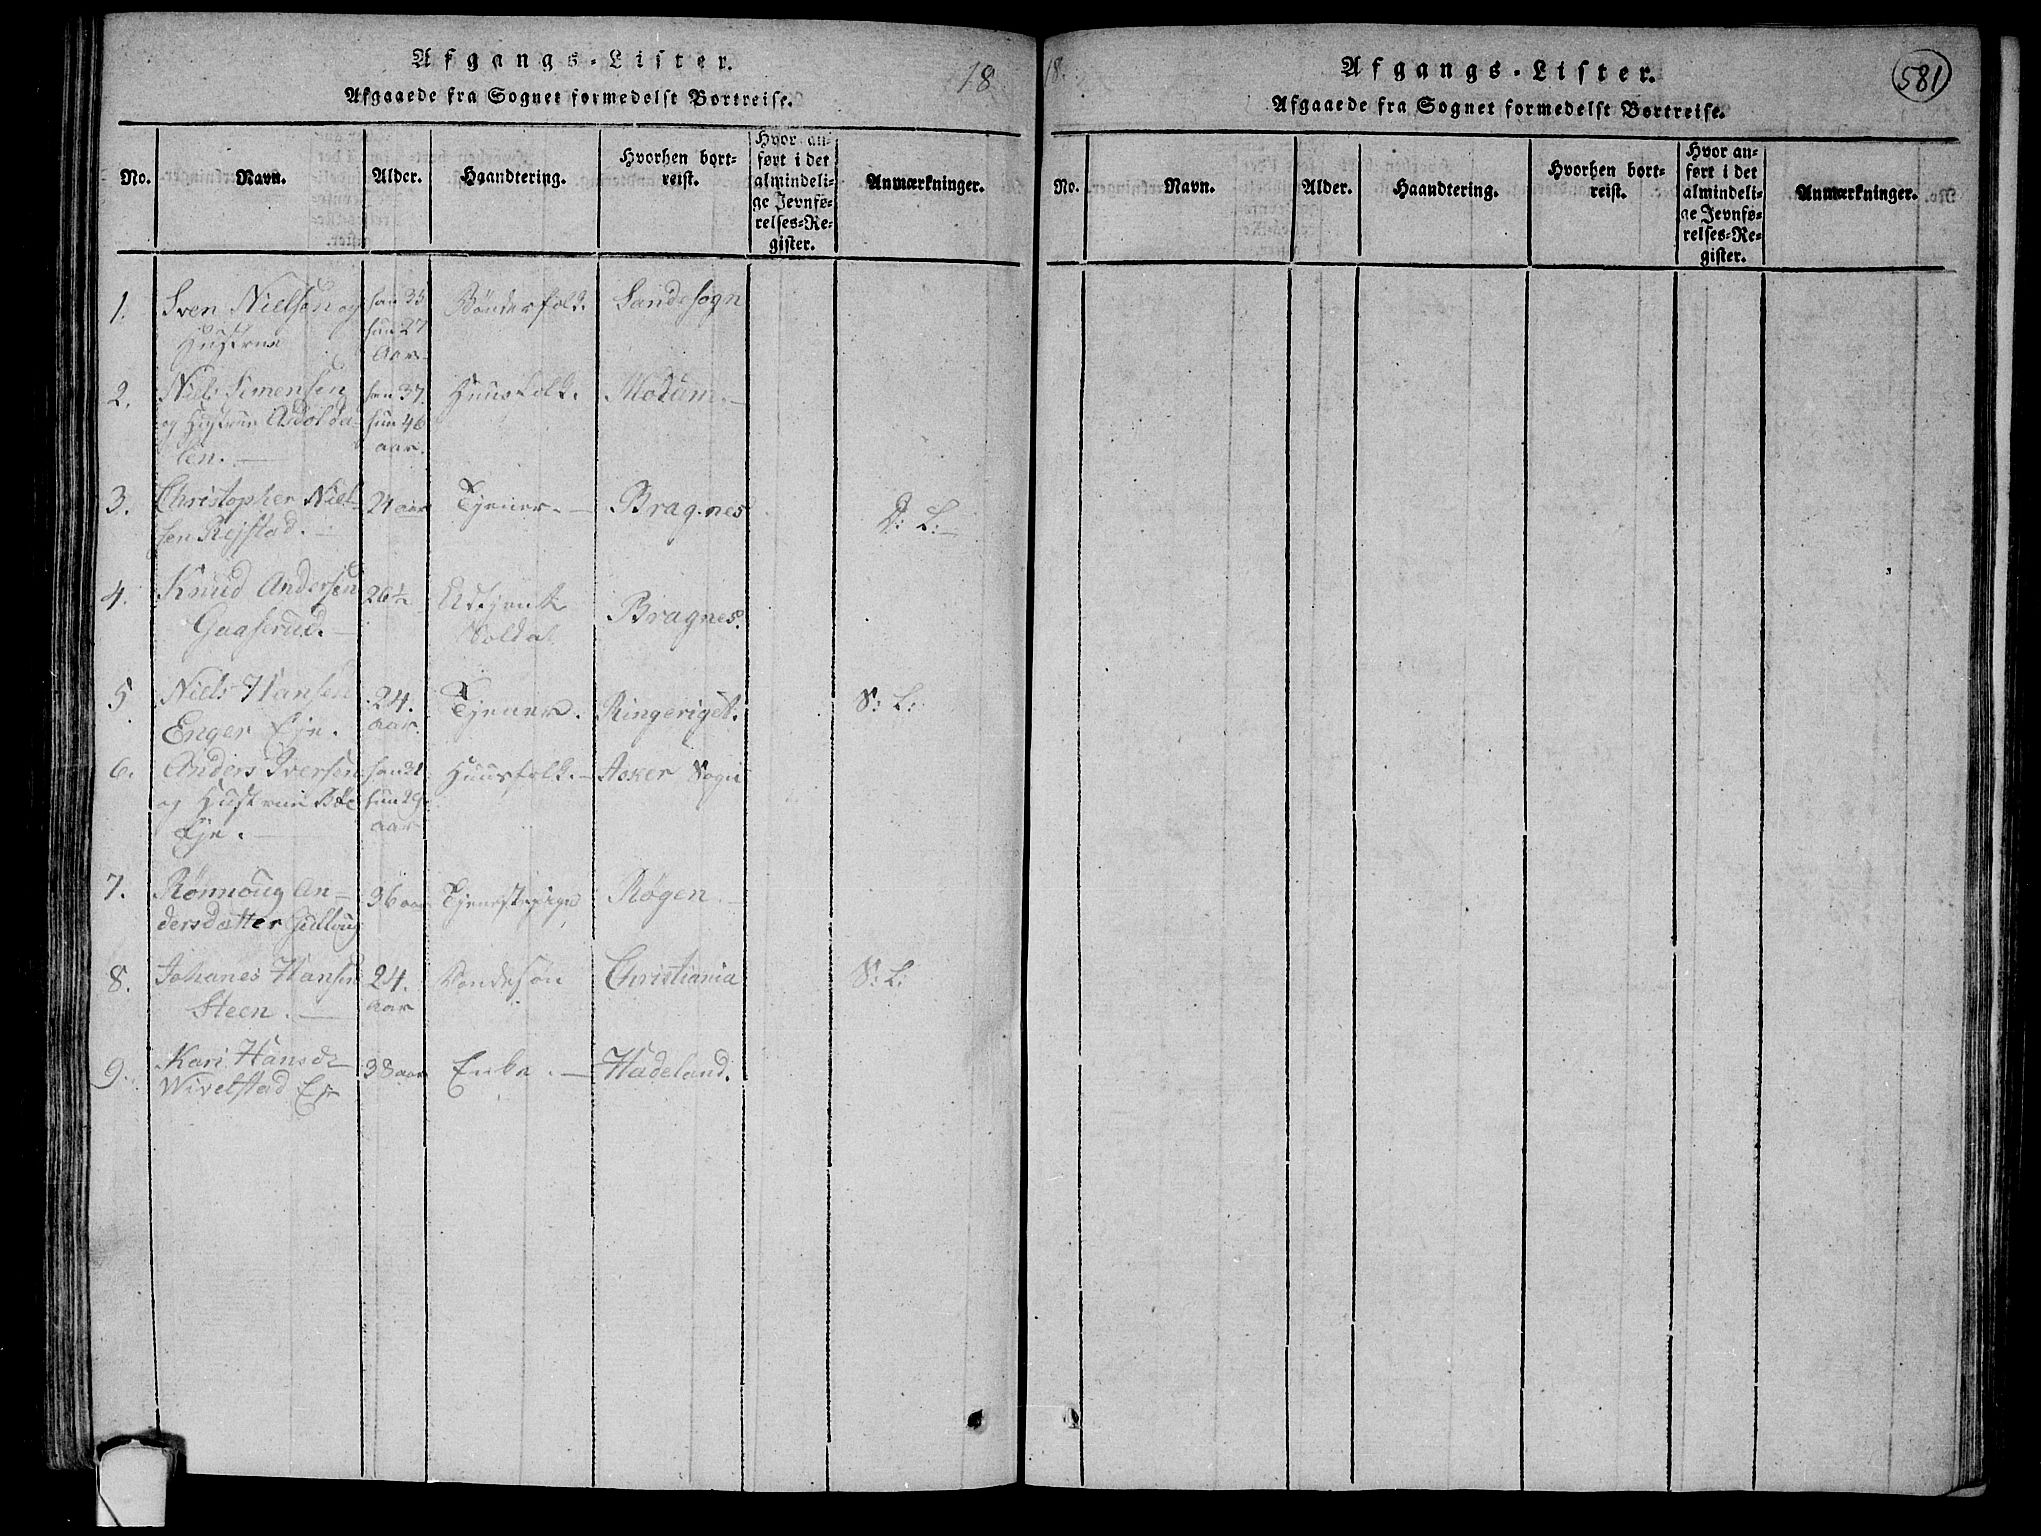 Afgangs-Lister.
18
Afgaaede fra Sognet formedelst Bortreise.
No. Navn. Alder. Haandtering. Hvorhen bortreist. Hvor anført i det almindelige Jevnførelses-Register. Anmærkninger.
1. Sven Nielsen og han 33 Bønderfolk. Sandesogn
Hustrue hun 27
Aar
2. Niels Simensen han 37. Huusfolk. Modum.
og Hustrue hun 46
len. aar.
3. Christopher Niel- 21 aar Tjener. Bragnes
sen Rejstad.
4. Knud Andersen 26½ Udtjent Bragnes.
Gaaserud. Soldat
5. Niels Hansen 24. Tjener. Ringeriget. S: L:
Enger Eje. aar.
6. Anders Iversen Huusfolk. Asker Sogn
og Hustrue hun 29
Eje. aar
7. Rønnoug An- 36 aar Tjenestepige Røgen.
dersdatter
8. Johanes Hansen 24. Bondesøn Christiania S: L:
Steen. aar
9. Kari Hansdr 38 aar Enke. Hadeland.
Wivelstad Ej
18.
Afgangs-Lister.
581
Afgaaede fra Sognet formedelst Bortreise.
No. Navn. Alder. Haandtering. Hvorhen bortreist. Hvor anført i det almindelige Jevnførelses-Register. Anmærkninger.